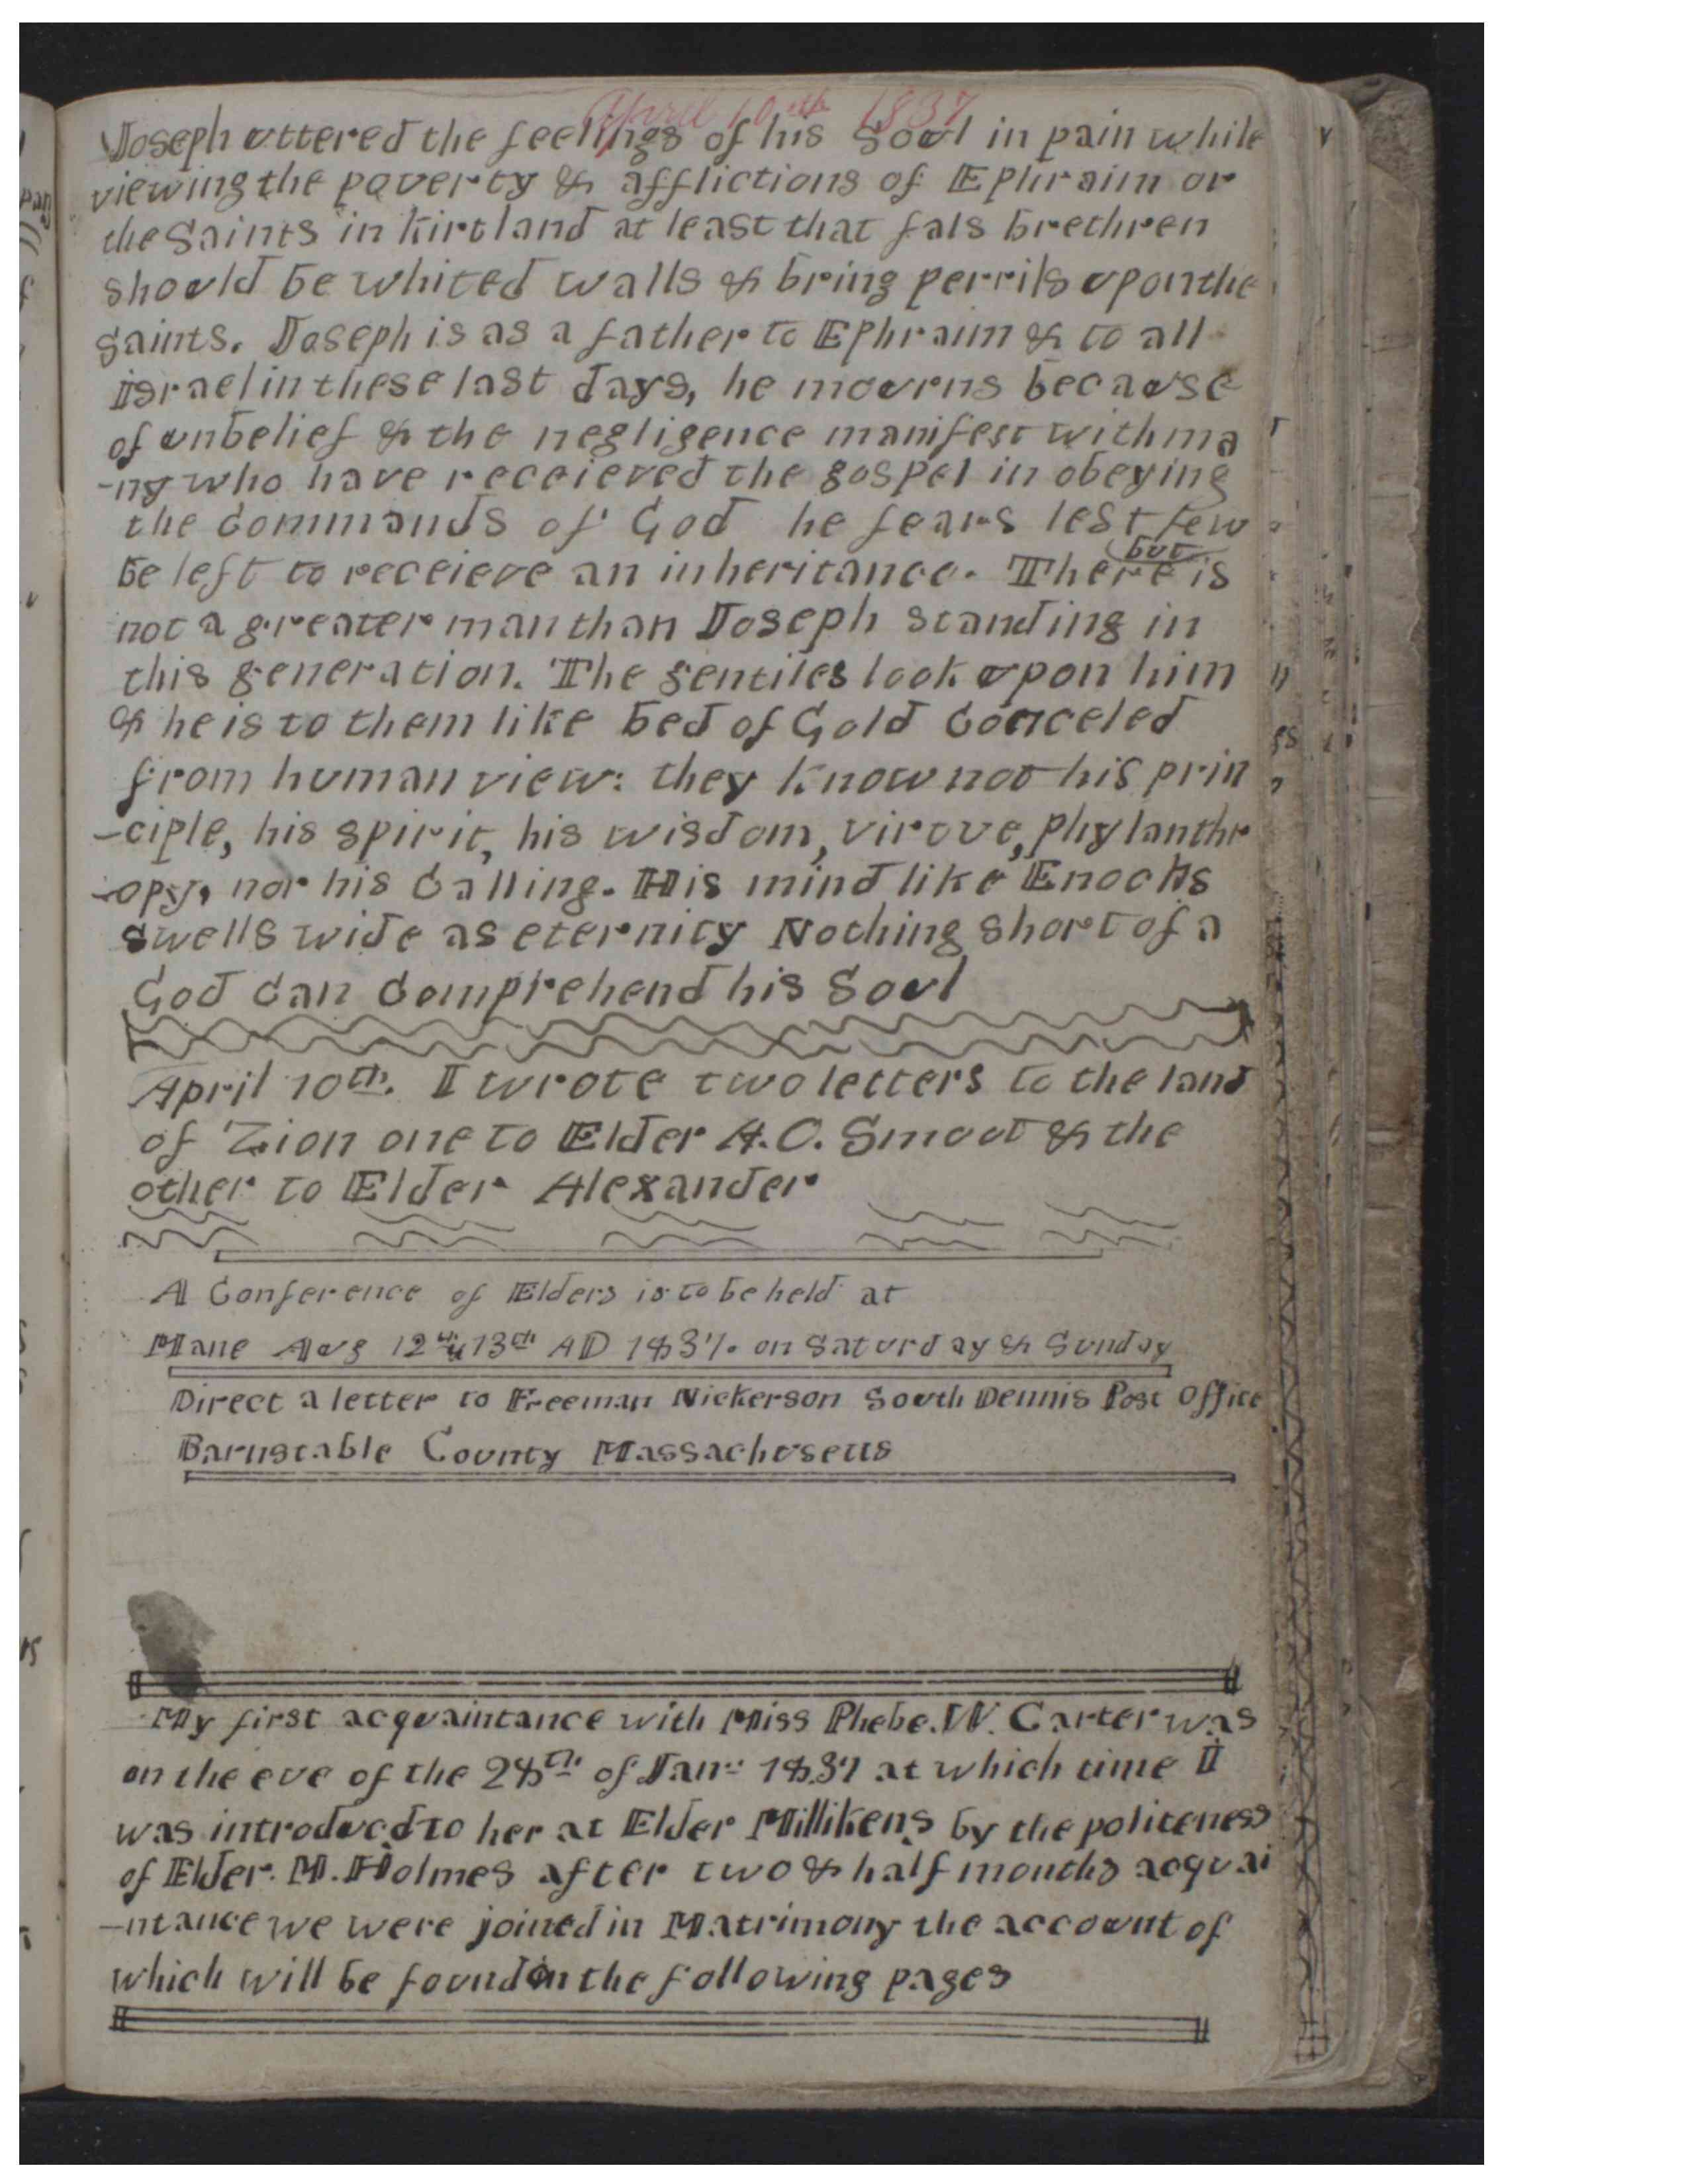 April 10th 1837
Joseph uttered the feelings of his Soul in pain while
viewing the poverty & afflictions of Ephraim or
the Saints in Kirtland at least that fals brethren
should be whited walls & bring perrils upon the
Saints. Joseph is as a father to Ephraim & to all
Israel in these last days, he mourns because
of unbelief & the negligence manifest with ma
-ny who have receieved the gospel in obeying
the Commands of God he fears lest few
but
be left to receieve an inheritance. There is
not a greater man than Joseph standing in
this generation. The gentiles look upon him
& he is to them like bed of Gold Conceled
from human view: they know not his prin
-ciple, his spirit, his wisdom, virtue, phylanthr
-opy, nor his Calling. His mind like Enochs
swells wide as eternity Nothing short of a
God Can Comprehend his Soul
April 10th. I wrote two letters to the land
of Zion one to Elder A.O. Smoot & the
other to Elder Alexander
A Conference of Elders is to be held at
Mane Aug 12th 13th AD 1837. on Saturday & Sunday
Direct a letter to Freeman Nickerson South Dennis Post Office
Barnstable County Massachusetts
My first acquaintance with Miss Phebe. W. Carter was
on the eve of the 28th of Jan: 1837 at which time I
was introduced to her at Elder Millikens by the politeness
of Elder. M. Holmes after two & half months acquai
-ntance we were joined in Matrimony the account of
which will be found in the following pages